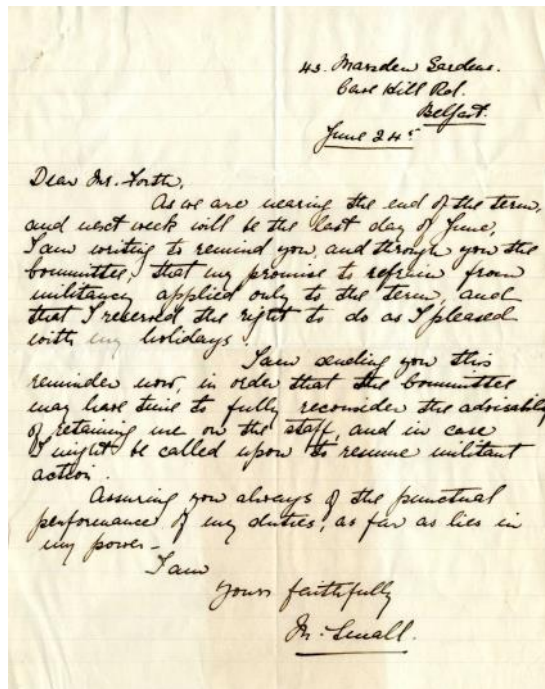 43. Marsden Gardens.
Cave Hill Rd.
Belfast.
June 24th
Dear Mr. Forth,
As we are nearing the end of the term,
and next week will be the last day of June,
I am writing to remind you, and through you the
Committee, that my promise to refrain from
militancy applied only to the term, and
that I reserved the right to do as I pleased
with my holidays.
I am sending you this
reminder now, in order that the Committee
may have time to fully reconsider the advisability
of retaining me on the staff, and in case
I might be called upon to resume militant
action.
Assuring you always of the punctual
performance of my duties, as far as lies in
my power –
I am
Yours faithfully
M. Small.